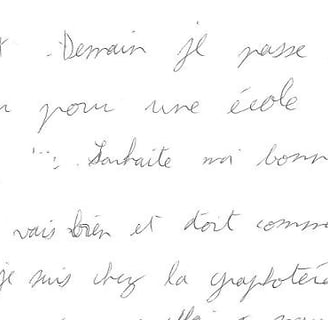 . Demain je passe
pour une école
"'; Souhaite moi bonn
vais bien et doit comme
je suis chez la graphoté